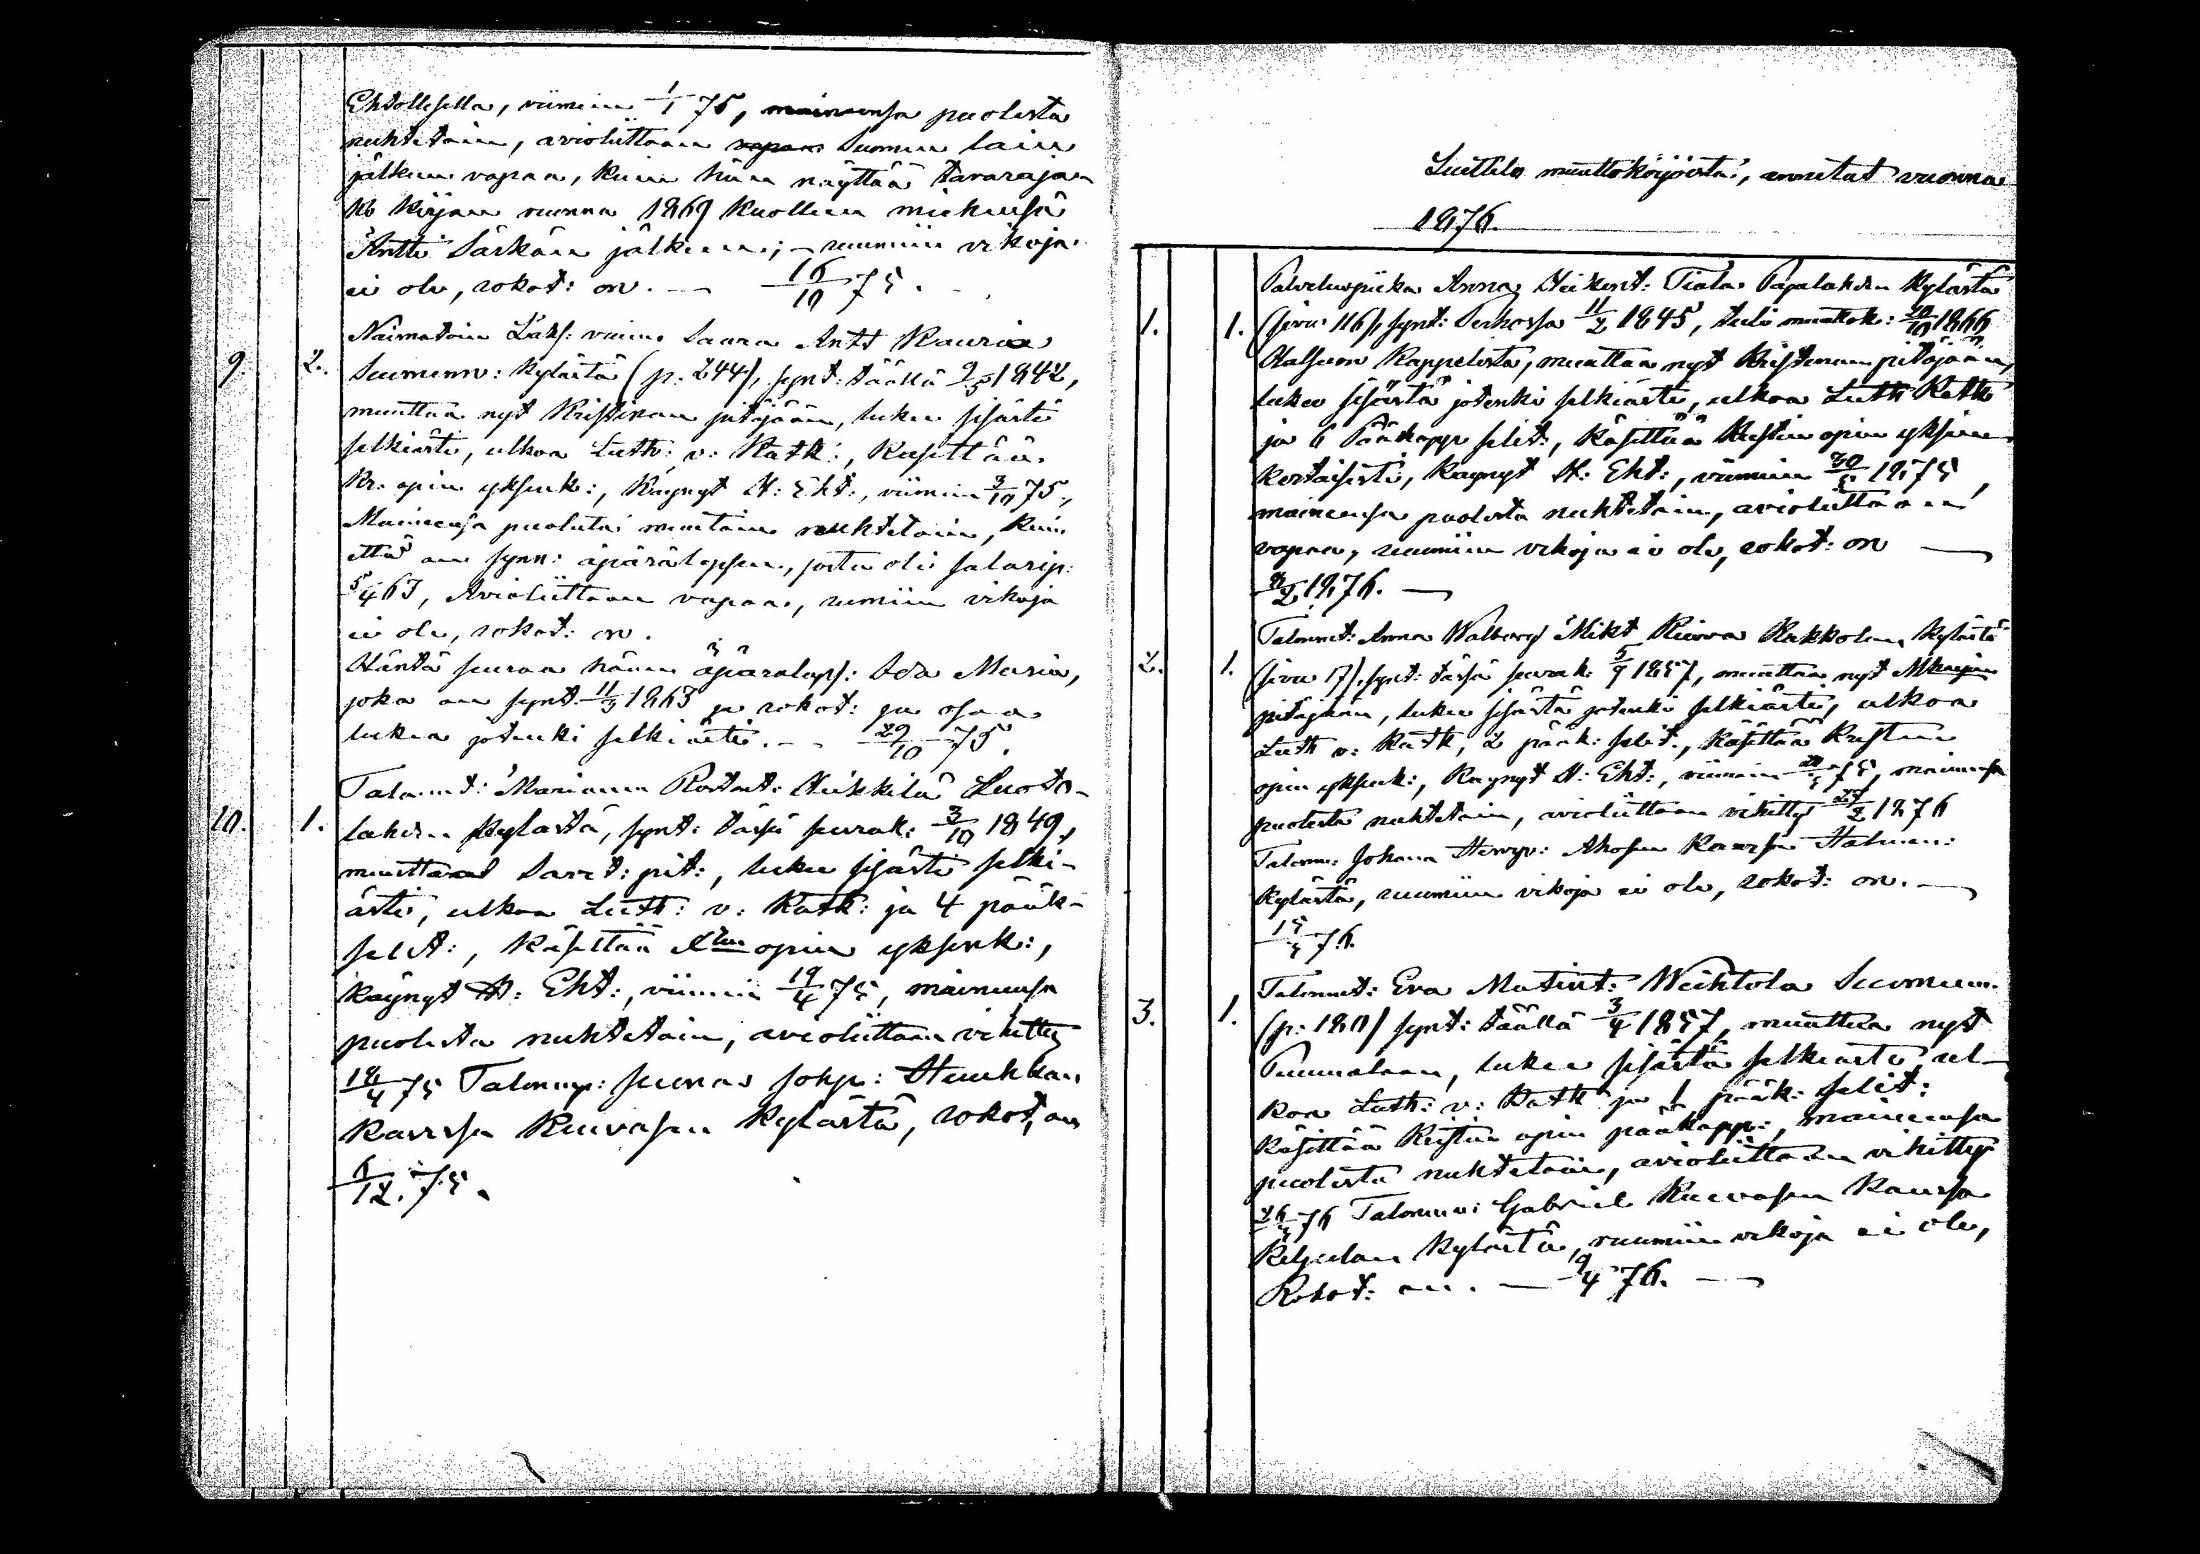 Ehtollisella, viimein 1/1 75, mainensa puolesta
nuhtetoin, avioliittoon vapaa Suomen lain
jälkeen vapaa, kuin hän näyttää tavarajaon
Kirjan vuonna 1869 kuolleen miehensä
Antti Särkän jälkeen; - ruumiin vikoja
ei ole, rokot: on. - 16/10 75.
Naimatoin Saara Antt Kauria
9. 2. Suomenn: kylästä (p. 244), synt: täällä 9/5 1842,
muuttaa nyt Kristinan pitäjään, lukee sisästä
selkiästi, ulkoa Luth: v: Katk:, Käsittää
Kr. opin yksink:, Käynyt H: Eht:, viimein 3/10 75,
Maineensa puolesta muutoin nuhtetoin, kuin
että on synn: äpärälapsen, josta oli salarip:
5/4 63, Avioliittoon vapaa, rumiin vikoja
ei ole, rokot: on.
Häntä seuraa hänen äpäralaps: Ida Maria,
joka on synt 11/3 1863 ja rokot: ja osaa
lukea jotenki selkiästi. - 29/10 75.
Talonnt: Marianna Heikkilä Luoto-
10. 1. lahden kylästä, synt: tässä seurak: 3/10 1849,
muuttanut Savit: pit:, lukee sisästä selki-
ästi, ulkoa Luth: v: Katk: ja 4 pääk:
selit:, käsittää opin yksink:,
käynyt H: Eht:, viimein 19/4 75, maineensa
puolesta nuhtetoin, avioliittoon vihitty
18/4 75 Talonnp:
kanssa Kuivasen kylästä, rokot, on
6/12. 75.
Luettelo muuttokirjoista, annetut vuonna
1876.
Palveluspiika Anna Heikint: Tiala Papalahden kylästä
1. 1. (sivu 116), synt: Perhossa 11/2 1845, tuli muuttok: 20/10 1866
Halsuan kappelista, muuttaa nyt Kristinan pitäjään,
lukee sisästä jotenki selkiästi, ulkoa Luth Katk
ja 6 Pääkapp selit:, käsittää Kristin opin yksin-
kertaisesti, käynyt H: Eht:, viimein 30/5 1875,
maineensa puolesta nuhtetoin, avioliittoon
vapaa, ruumiin vikoja ei ole, rokot: on
8/2 1876. -
Talonnt: Anna Walborg Mikt Kiuru Kakkolan kylästä
2. 1. (sivu 17), synt: tässä seurak: 5/9 1857, muuttaa nyt
pitäjään, lukee sisästä jotenki selkiästi, ulkoa
Luth v: Katk, 2 pääk: selit., käsittää Kristin
opin yksink:, käynyt H: Eht:, viimein 75, maineensa
puolesta nuhtetoin, avioliittoon vihitty 27/2 1876
Talonn: Johana Ahosen kanssa
kylästä, ruumiin vikoja ei ole, rokot: on. -
76.
Talonnt: Eva Matint: Weihtola Suomenn.
3. 1. (p: 180) synt: täällä 3/4 1857, muuttaa nyt
Puumalaan, lukee sisästä selkiästi ul-
koa Luth: v: Katk ja 1 pääk: selit:
käsittää Kristin opin pääkapp:, maineensa
puolesta nuhtetoin, avioliittoon vihitty
76 Talonnn: Gabriel Kuivasen kanssa
kylästä, ruumiin vikoja ei ole,
Rokot: on. - 9/4 76. -